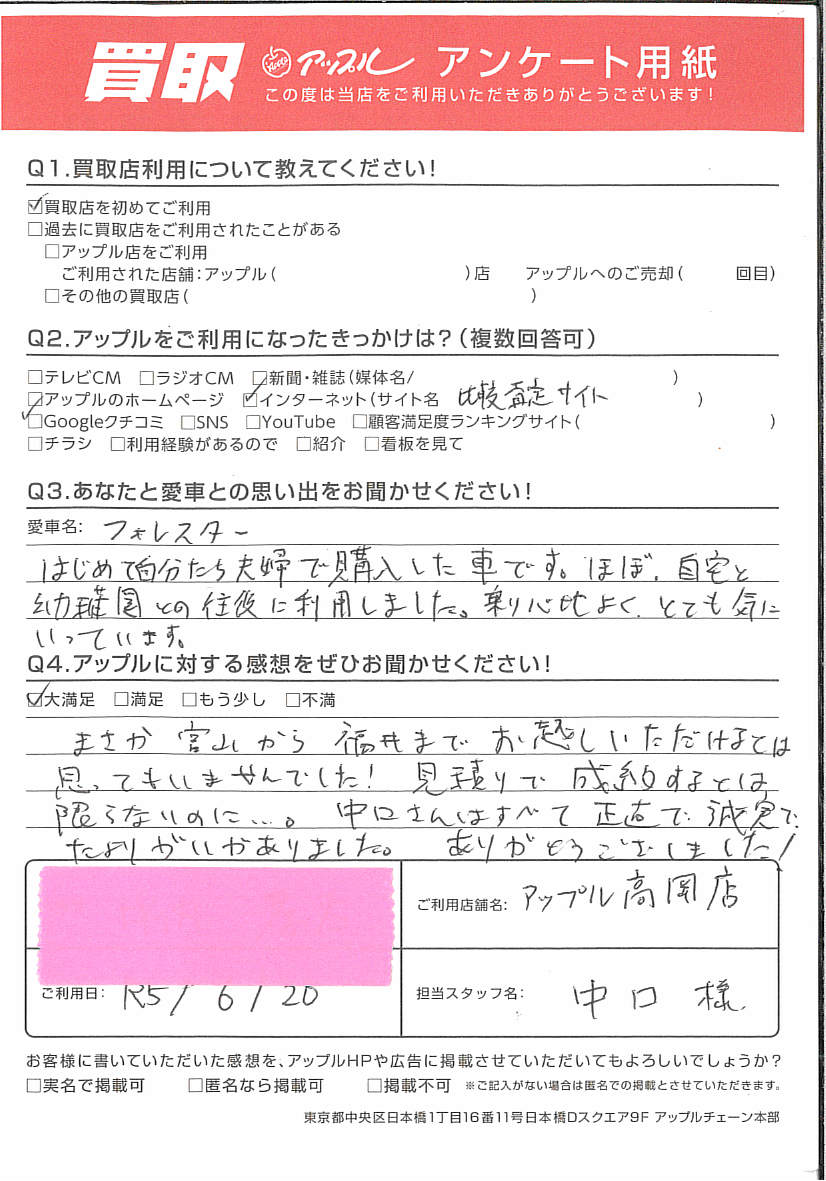 買取 アップル アンケート用紙
この度は当店をご利用いただきありがとうございます!
Q1.買取店利用について教えてください!
☑買取店を初めてご利用
□過去に買取店をご利用されたことがある
□アップル店をご利用
ご利用された店舗:アップル( )店 アップルへのご売却( 回目)
□その他の買取店( )
Q2.アップルをご利用になったきっかけは?(複数回答可)
□テレビCM □ラジオCM □新聞・雑誌(媒体名/ )
☑アップルのホームページ ☑インターネット(サイト名 比較査定サイト )
☑Googleクチコミ □SNS □YouTube □顧客満足度ランキングサイト( )
□チラシ □利用経験があるので □紹介 □看板を見て
Q3.あなたと愛車との思い出をお聞かせください!
愛車名: フォレスター
はじめて自分たち夫婦で購入した車です。ほぼ、自宅と
幼稚園との往復に利用しました。乗り心地よく、とても気に
いっています。
Q4.アップルに対する感想をぜひお聞かせください!
☑大満足 □満足 □もう少し □不満
まさか富山から福井までお越しいただけるとは
思ってもいませんでした! 見積りで成約するとは
限らないのに…。中口さんはすべて正直で誠実で
たよりがいがありました。 ありがとうございました!
ご利用店舗名: アップル高岡店
ご利用日: R5/6/20
担当スタッフ名: 中口 様
お客様に書いていただいた感想を、アップルHPや広告に掲載させていただいてもよろしいでしょうか?
□実名で掲載可 □匿名なら掲載可 □掲載不可 ※ご記入がない場合は匿名での掲載とさせていただきます。
東京都中央区日本橋1丁目16番11号日本橋Dスクエア9F アップルチェーン本部